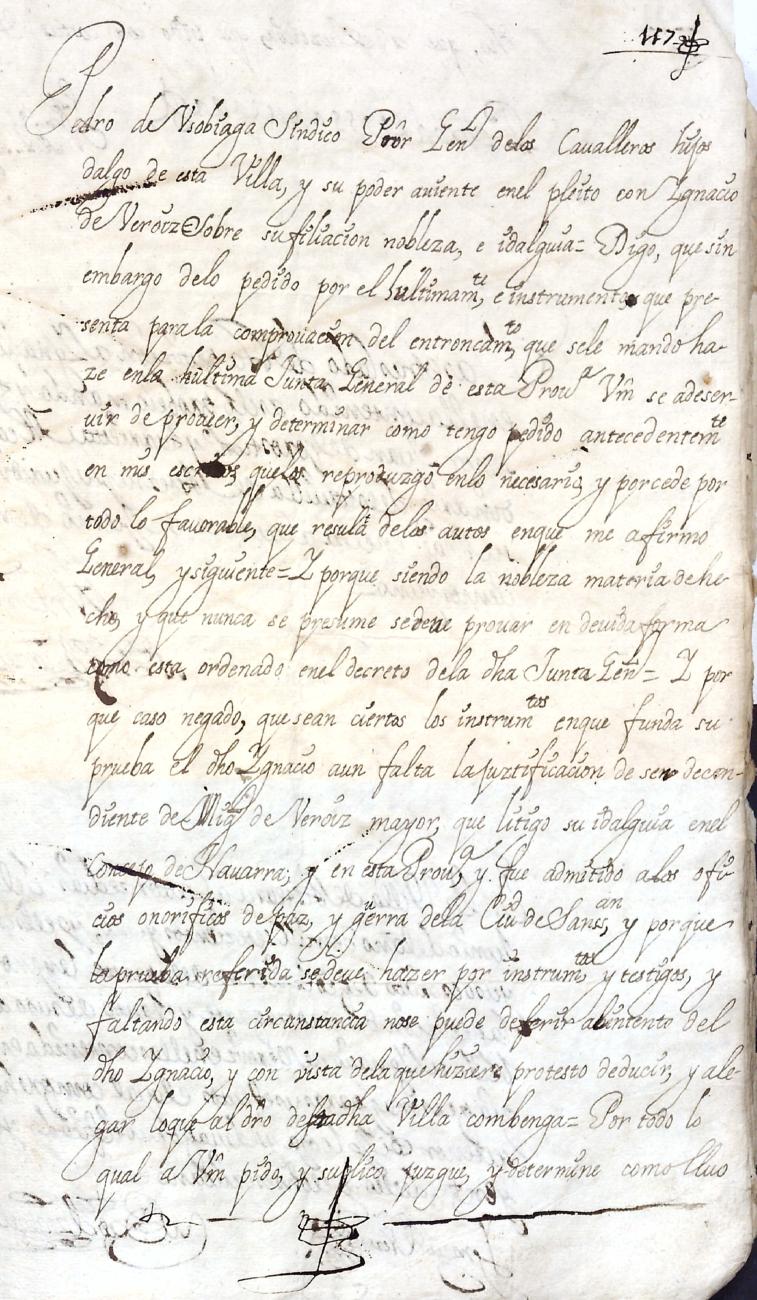 117
Pedro de Vsobiaga Sindico Pror Gen.l delos Cavalleros hijos
dalgo de esta Villa, y su poder auiente enel pleito con Ygnacio
de Veroiz Sobre su filiacion nobleza, e idalguia= Digo, que sin
embargo delo pedido por el hultimam.te, e instrumentos que pre-
senta parala comprouacion del entroncam.to, que sele mando ha-
ze enla hultima Junta General de esta Prou.a Vm se adeser-
uir de proueer, y determinar como tengo pedido antecedentem.te
en mis escritos, quelos reproduzgo enlo necesario, y porcede por
todo lo fauorable, que resulta delos autos enque me afirmo
General, y siguiente= Y porque siendo la nobleza materia de he-
cho, y que nunca se presume sedeue prouar en deuida forma
como esta ordenado enel decreto dela dha Junta Gen= Y por
que caso negado, que sean ciertos los instrum.tos enque funda su
prueba el dho Ygnacio aun falta la juztificacion de ser decen-
diente de Mig.l de Veroiz mayor, que litigo su idalguia enel
Concejo de Navarra, y en esta Prou.a, y fue admitido alos ofi-
cios onorificos de paz, y guerra dela Ciu.d de Sanss.an, y porque
la prueba referida se deue hazer por instrum.tos, y testigos, y
faltando esta circunstancia nose puede deferir al intento del
dho Ygnacio, y con vista dela que hiziere protesto deducir, y ale-
gar loque al dro desta dha Villa combenga= Por todo lo
qual a Vm pido, y suplico juzgue, y determine como lleuo